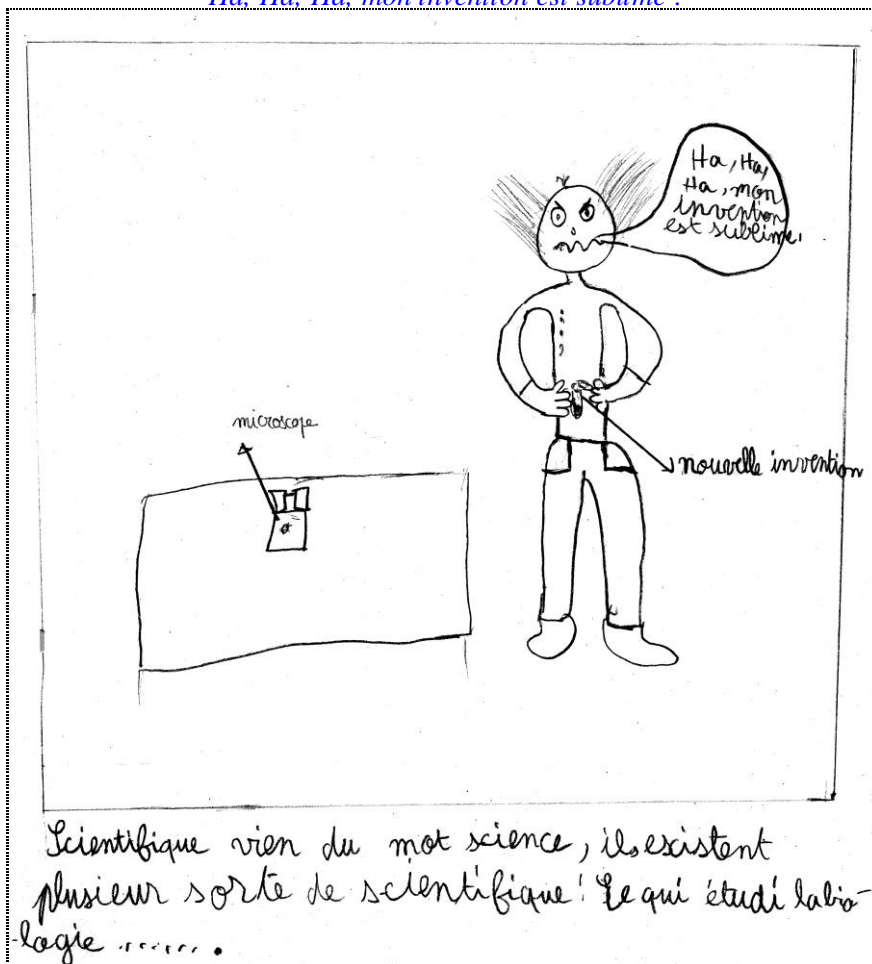 Ha, Ha, Ha, mon invention est sublime !
Ha, Ha,
Ha, mon
invention
est sublime.
microscope
nouvelle invention
Scientifique vien du mot science, ils existent
plusieur sorte de scientifique! Ce qui étudi la bio-
-logie .......